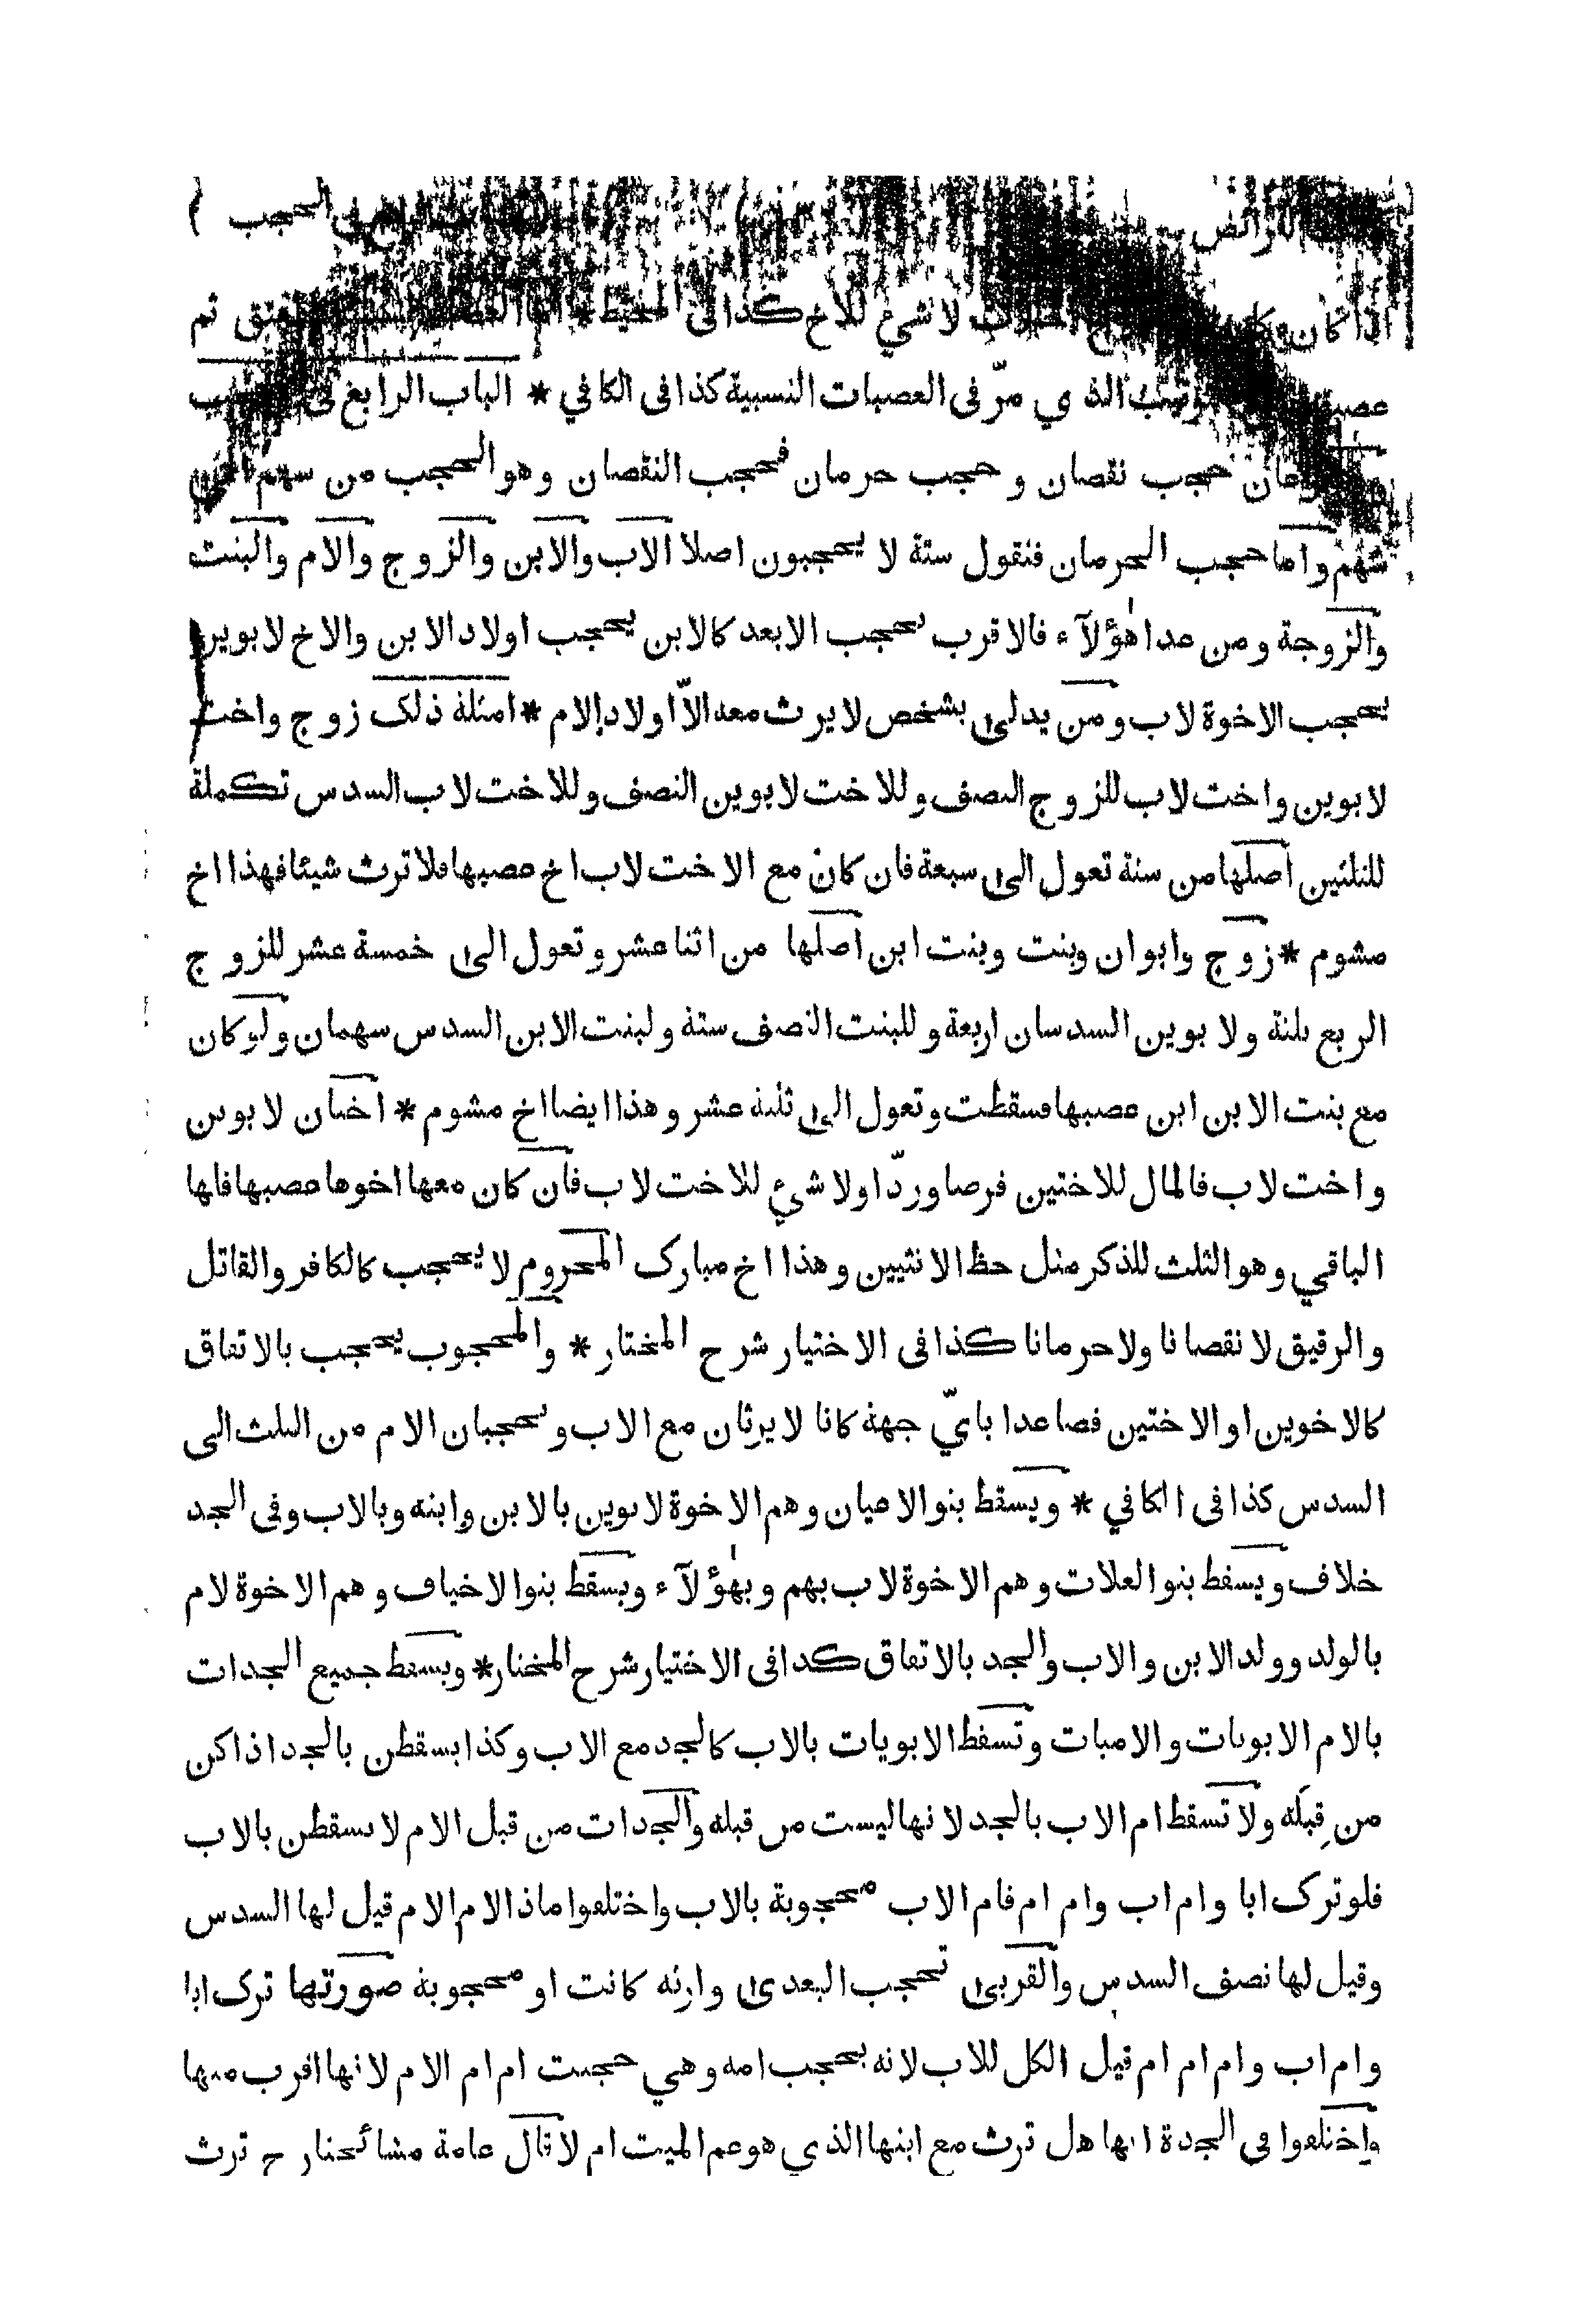 الفرائض الحجب )
اذا كان لا شيء للاخ كذا فى المحيط * المعتق ثم
عصبة الترتيب الذي مرّ فى العصبات النسبية كذا فى الكافي * الباب الرابع فى
نوعان حجب نقصان و حجب حرمان فحجب النقصان وهو الحجب من سهم الى
سهم واما حجب الحرمان فنقول ستة لا يحجبون اصلا الاب والابن والزوج والام والبنت
والزوجة ومن عدا هؤلآء فالاقرب يحجب الابعد كالابن يحجب اولاد الابن والاخ لابوين
يحجب الاخوة لاب ومن يدلى بشخص لا يرث معه الاّ اولاد الام * امثلة ذلك زوج واخت
لابوين واخت لاب للزوج النصف وللاخت لابوين النصف وللاخت لاب السدس تكملة
للثلثين اصلها من ستة تعول الى سبعة فان كان مع الاخت لاب اخ عصبها فلا ترث شيئا فهذا اخ
مشوم * زوج وابوان وبنت وبنت ابن اصلها من اثنا عشر وتعول الى خمسة عشر للزوج
الربع ثلثة ولابوين السدسان اربعة وللبنت النصف ستة ولبنت الابن السدس سهمان ولو كان
مع بنت الابن ابن عصبها فسقطت وتعول الى ثلثة عشر وهذا ايضا اخ مشوم * اختان لابوين
واخت لاب فالمال للاختين فرضا وردّا ولا شيء للاخت لاب فان كان معها اخوها عصبها فلها
الباقي وهو الثلث للذكر مثل حظ الانثيين وهذا اخ مبارك المحروم لا يحجب كالكافر والقاتل
والرقيق لا نقصانا ولا حرمانا كذا فى الاختيار شرح المختار * والمحجوب يحجب بالاتفاق
كالاخوين او الاختين فصاعدا بايّ جهة كانا لا يرثان مع الاب ويحجبان الام من الثلث الى
السدس كذا فى الكافي * ويسقط بنو الاعيان وهم الاخوة لابوين بالابن وابنه وبالاب وفى الجد
خلاف ويسقط بنو العلات وهم الاخوة لاب بهم وبهؤلآء ويسقط بنو الاخياف وهم الاخوة لام
بالولد وولد الابن والاب والجد بالاتفاق كذا فى الاختيار شرح المختار * ويسقط جميع الجدات
بالام الابويات والاميات وتسقط الابويات بالاب كالجد مع الاب وكذا يسقطن بالجد اذا كن
من قِبَله ولا تسقط ام الاب بالجد لانها ليست من قبله والجدات من قبل الام لا يسقطن بالاب
فلو ترك ابا وام اب وام ام فام الاب محجوبة بالاب واختلفوا ماذا لام الام قيل لها السدس
وقيل لها نصف السدس والقربى تحجب البعدى وارثه كانت او محجوبة صورتها ترك ابا
وام اب وام ام ام قيل الكل للاب لانه يحجب امه وهي حجبت ام ام الام لانها اقرب منها
واختلفوا فى الجدة انها هل ترث مع ابنها الذي هو عم الميت ام لا قال عامة مشائخنا رح ترث